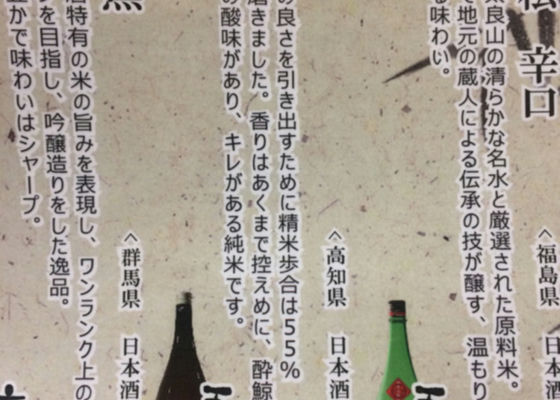 辛口
良山の清らかな名水と厳選された原料米。
で地元の蔵人による伝承の技が醸す、温もり
る味わい。
〈福島県 日本酒
の良さを引き出すために精米歩合は55%
磨きました。香りはあくまで控えめに、酔鯨
の酸味があり、キレがある純米です。
〈高知県 日本酒
特有の米の旨みを表現し、ワンランク上の
を目指し、吟醸造りをした逸品。
かで味わいはシャープ。
〈群馬県 日本酒